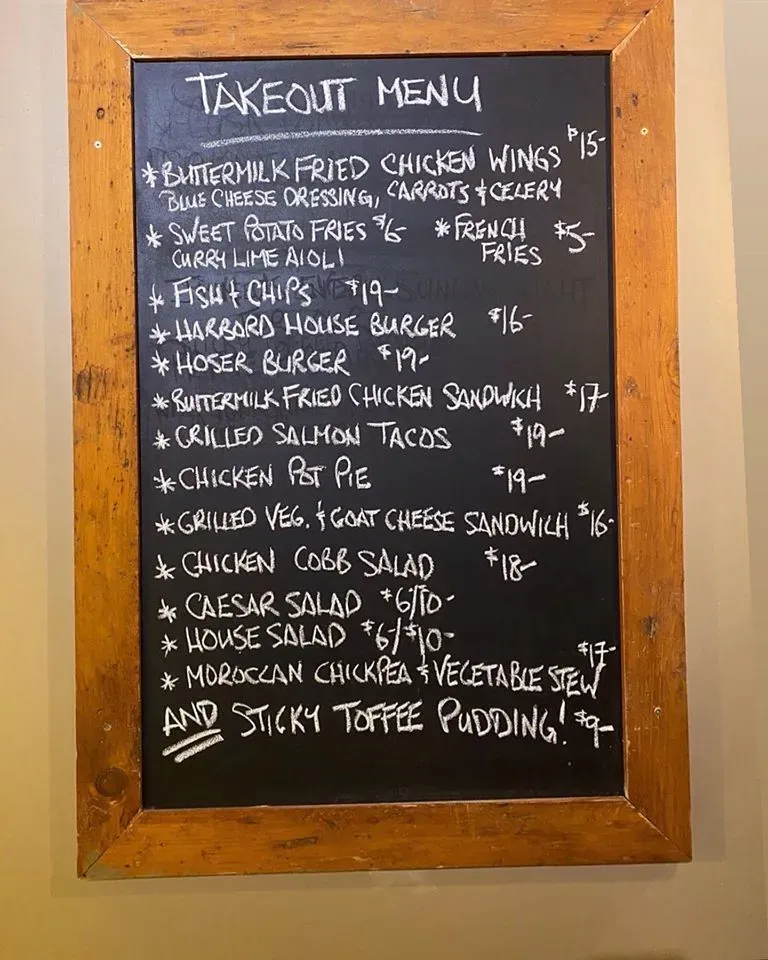 TAKEOUT MENU
* BUTTERMILK FRIED CHICKEN WINGS $15-
BLUE CHEESE DRESSING, CARROTS & CELERY
* SWEET POTATO FRIES $6- * FRENCH FRIES $5-
CURRY LIME AIOLI
* FISH & CHIPS $19-
* HARBORD HOUSE BURGER $16-
* HOSER BURGER $19-
* BUTTERMILK FRIED CHICKEN SANDWICH $17-
* GRILLED SALMON TACOS $19-
* CHICKEN POT PIE $19-
* GRILLED VEG. & GOAT CHEESE SANDWICH $16-
* CHICKEN COBB SALAD $18-
* CAESAR SALAD $6/10-
* HOUSE SALAD $6/$10-
* MOROCCAN CHICKPEA & VEGETABLE STEW $17-
AND STICKY TOFFEE PUDDING! $9-